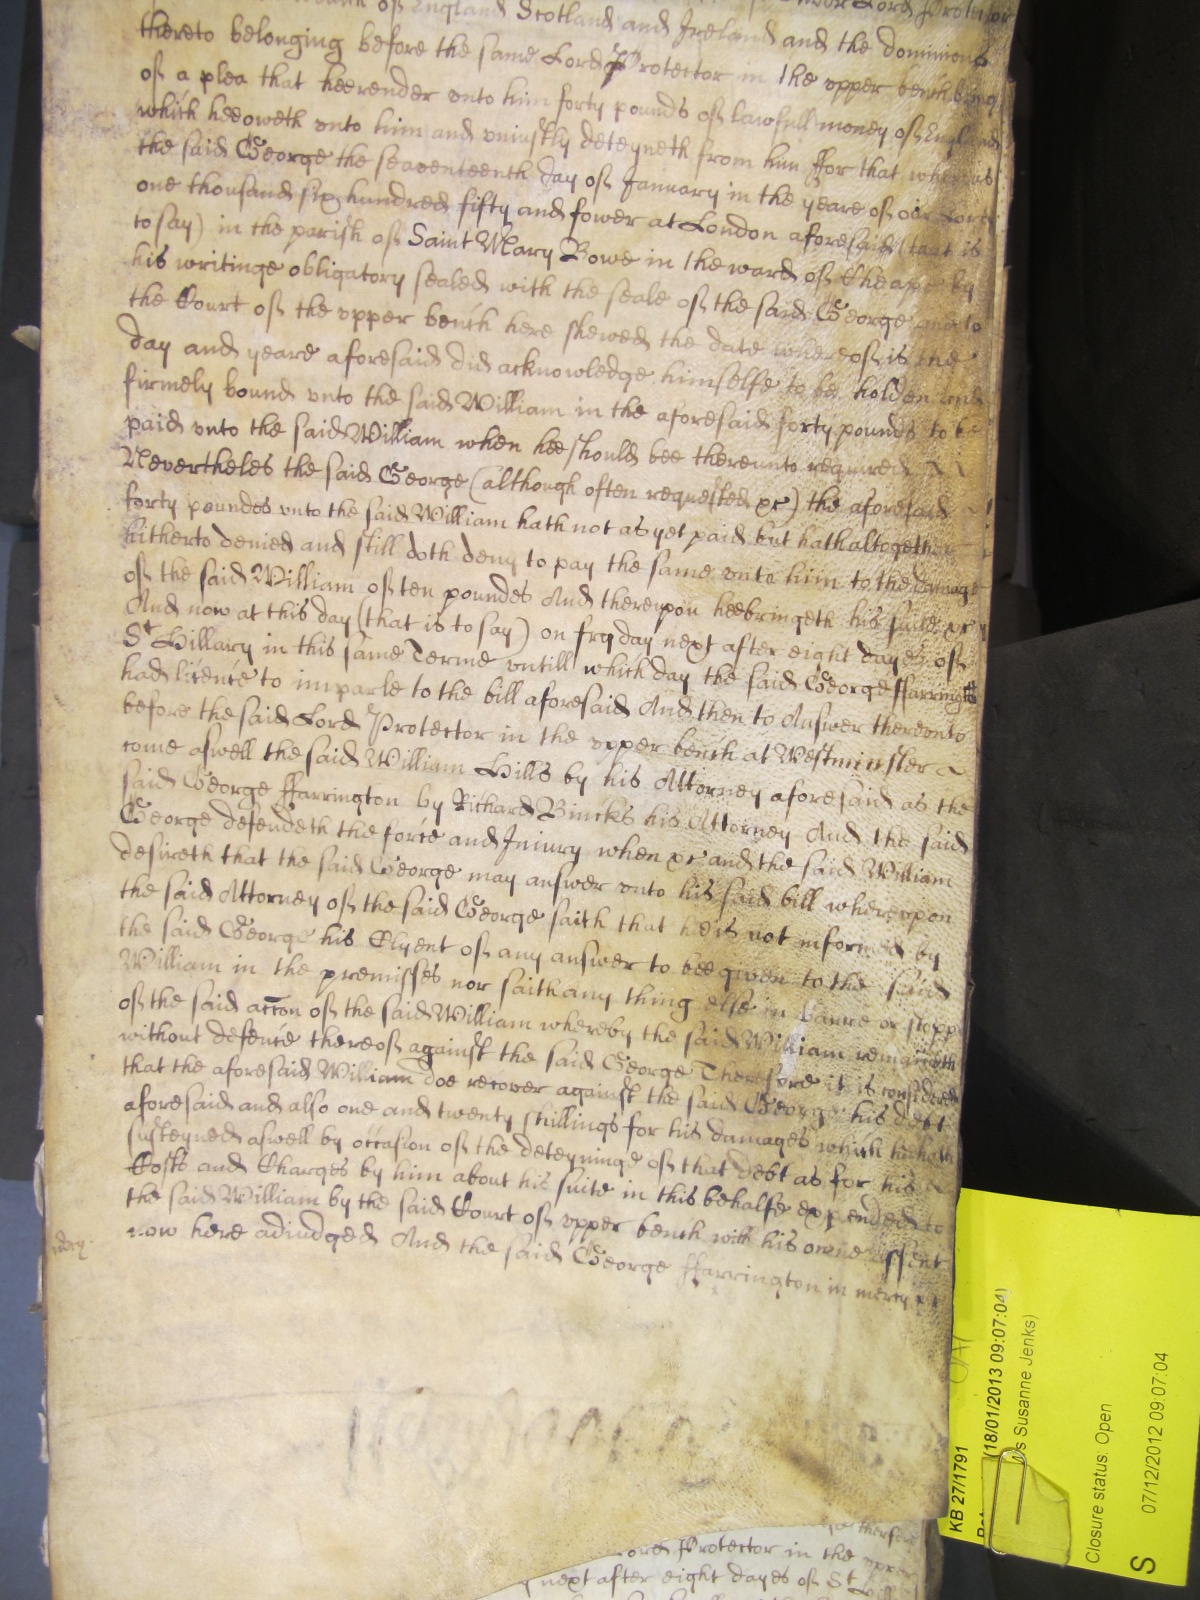 of England Scotland and Ireland and the dominions
thereto belonging before the same Lord Protector in the upper bench being
of a plea that hee render unto him forty pounds of lawfull money of England
which hee oweth unto him and uniustly deteyneth from him ffor that whereas
the said George the seaventeenth day of January in the yeare of our Lord
one thousand six hundred fifty and fower at London aforesaid (that is
to say) in the parish of Saint Mary Bowe in the ward of Cheape by
his writinge obligatory sealed with the seale of the said George and to
the Court of the upper bench here shewed the date whereof is the
day and yeare aforesaid did acknowledge himselfe to be holden and
firmely bound unto the said William in the aforesaid forty pounds to be
paid unto the said William when hee should bee thereunto required
Nevertheles the said George (although often requested xc) the aforesaid
forty poundes unto the said William hath not as yet paid but hath altogether
hitherto denied and still doth deny to pay the same unto him to the damage
of the said William of ten poundes And thereupon hee bringeth his suite xc
And now at this day (that is to say) on fryday next after eight dayes of
St Hillary in this same Terme untill which day the said George ffarrington
had licence to imparle to the bill aforesaid And then to Answer thereunto
before the said Lord Protector in the upper bench at Westminster
come aswell the said William Hills by his Attorney aforesaid as the
said George ffarrington by Richard Bincks his Attorney And the said
George defendeth the force and Iniury when xc and the said William
desireth that the said George may answer unto his said bill whereupon
the said Attorney of the said George saith that he is not informed by
the said George his Clyent of any answer to bee given to the said
William in the premisses nor saith any thing else in barre or stopp
of the said accon of the said William whereby the said William remaineth
without defence thereof against the said George Therefore it is considered
that the aforesaid William doe recover against the said George his debt
aforesaid and also one and twenty shillings for his damages which hee hath
susteyned aswell by occasion of the deteyninge of that debt as for his
Costs and Charges by him about his suite in this behalfe expended to
the said William by the said Court of upper bench with his owne assent
now here adiudged And the said George ffarrington in mercy xc
KB 27/1791
(18/01/2013 09:07:04)
Susanne Jenks)
Closure status: Open
S
07/12/2012 09:07:04
Protector in the upper
next after eight dayes of St